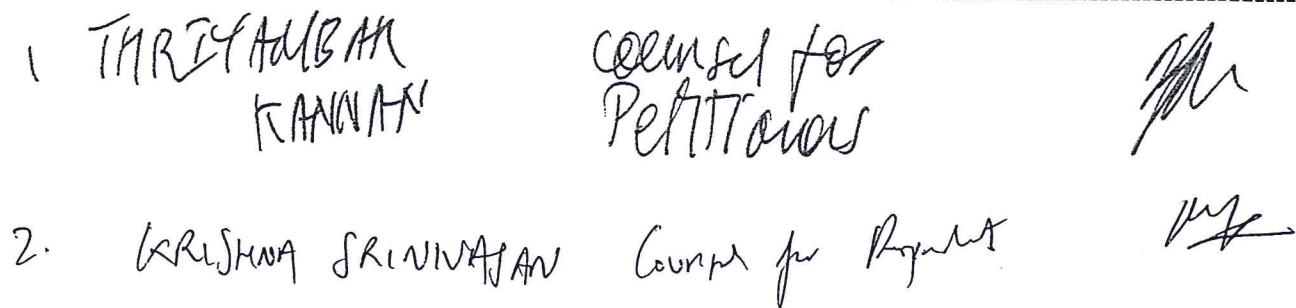 1 THRIYAMBAK COUNSEL for
KANNAN Petitioners
2. KRISHNA SRINIVASAN Counsel for Respondent